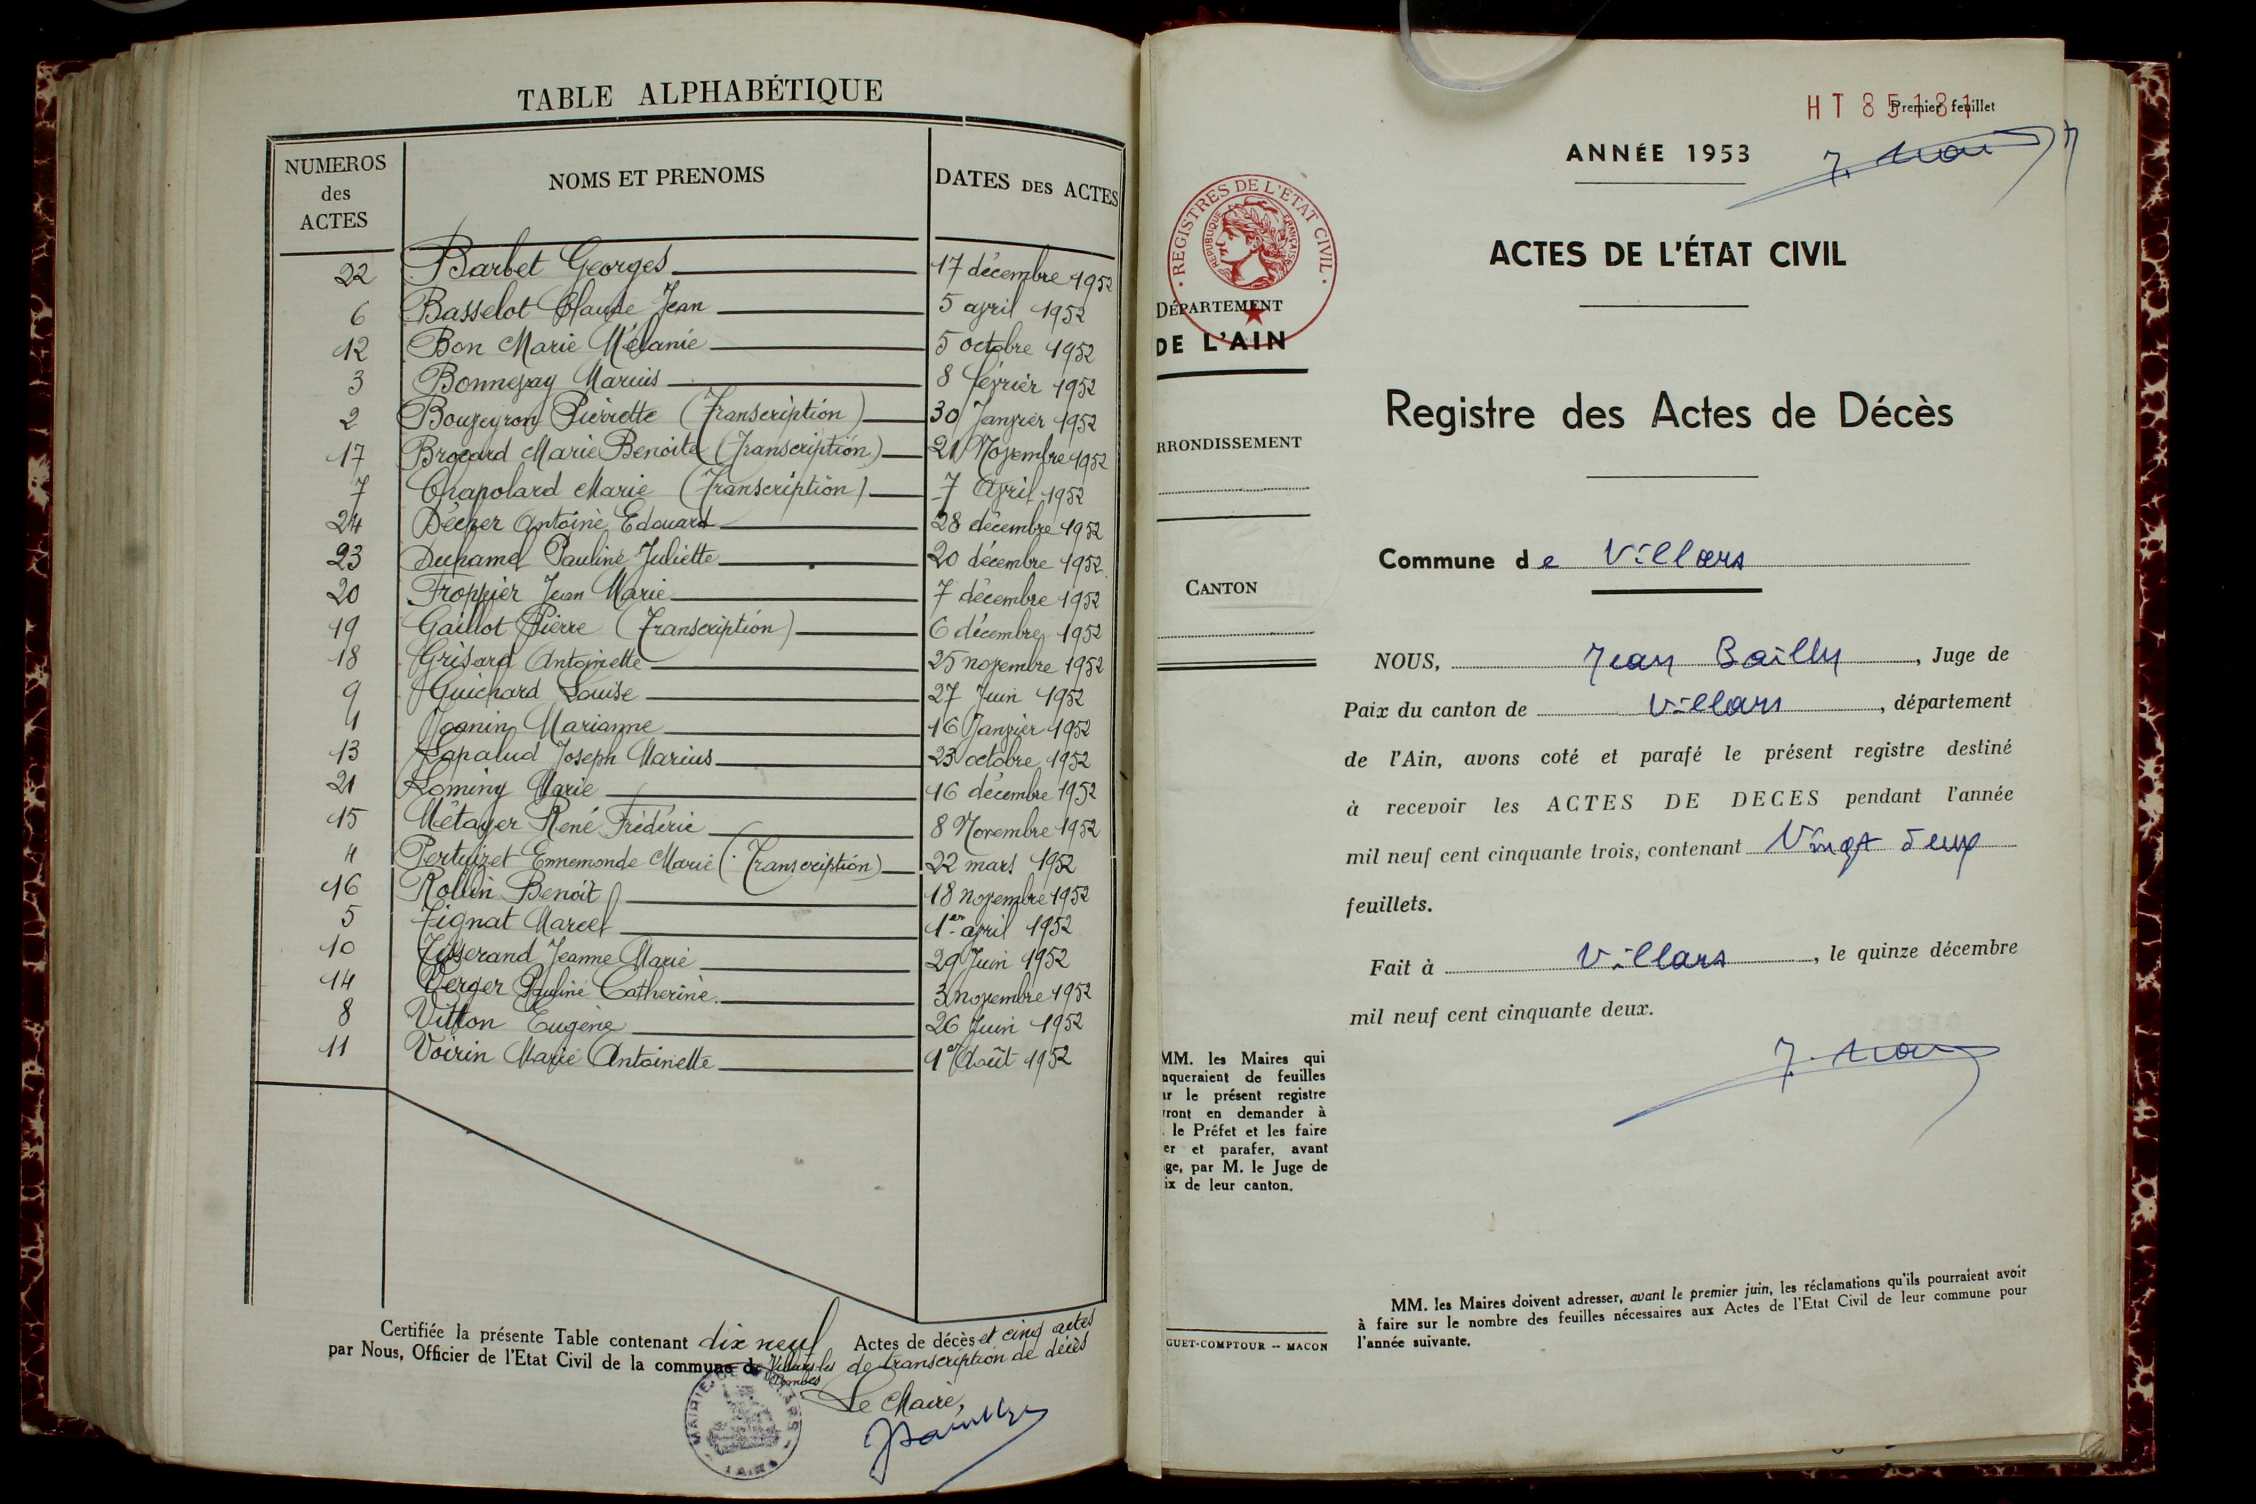 TABLE ALPHABÉTIQUE
NUMEROS des ACTES NOMS ET PRENOMS DATES DES ACTES
22 Barbet Georges 17 décembre 1952
6 Basselot Claude Jean 5 avril 1952
12 Bon Marie Mélanie 5 octobre 1952
3 Bonnepay Marius 8 février 1952
2 Bouzeyron Pierrette (Transcription) 30 Janvier 1952
17 Brocard Marie Benoite (Transcription) 21 Novembre 1952
7 Chapolard Marie (Transcription) 7 Avril 1952
24 Décher Antoine Edouard 28 décembre 1952
23 Duhamel Pauline Juliette 20 décembre 1952
20 Froppier Jean Marie 7 décembre 1952
19 Gaillot Pierre (Transcription) 6 décembre 1952
18 Grisard Antoinette 25 novembre 1952
9 Guichard Louise 27 Juin 1952
1 Joanin Marianne 16 Janvier 1952
13 Lapalud Joseph Marius 23 octobre 1952
21 Lominy Marie 16 décembre 1952
15 Métayer René Frédéric 8 Novembre 1952
4 Pertuizet Ennemonde Marie (Transcription) 22 mars 1952
16 Rollin Benoit 18 novembre 1952
5 Tignat Marcel 1er avril 1952
10 Tisserand Jeanne Marie 29 Juin 1952
14 Verger Pauline Catherine 3 novembre 1952
8 Vitton Eugène 26 Juin 1952
11 Voirin Marie Antoinette 1er Août 1952
Certifiée la présente Table contenant dix neuf Actes de décès et cinq actes
par Nous, Officier de l'Etat Civil de la commune de Villars les Dombes de transcription de décès
Le Maire,
MAIRIE DE VILLARS
(AIN)
HT 85181
Premier feuillet
ANNÉE 1953
REGISTRES DE L'ÉTAT CIVIL
RÉPUBLIQUE FRANÇAISE
ACTES DE L'ÉTAT CIVIL
DÉPARTEMENT
DE L'AIN
Registre des Actes de Décès
RRONDISSEMENT
Commune de Villars
CANTON
NOUS, Jean Bailly, Juge de
Paix du canton de Villars, département
de l'Ain, avons coté et parafé le présent registre destiné
à recevoir les ACTES DE DECES pendant l'année
mil neuf cent cinquante trois, contenant Vingt deux
feuillets.
Fait à Villars, le quinze décembre
mil neuf cent cinquante deux.
MM. les Maires qui
nqueraient de feuilles
ur le présent registre
vront en demander à
. le Préfet et les faire
er et parafer, avant
ge, par M. le Juge de
ix de leur canton.
MM. les Maires doivent adresser, avant le premier juin, les réclamations qu'ils pourraient avoir
à faire sur le nombre des feuilles nécessaires aux Actes de l'Etat Civil de leur commune pour
l'année suivante.
GUET-COMPTOUR -- MACON